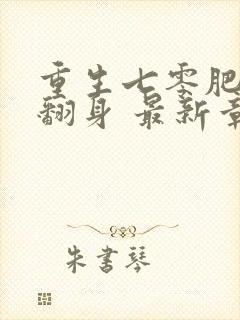 重生七零肥
翻身 最新章
朱书琴